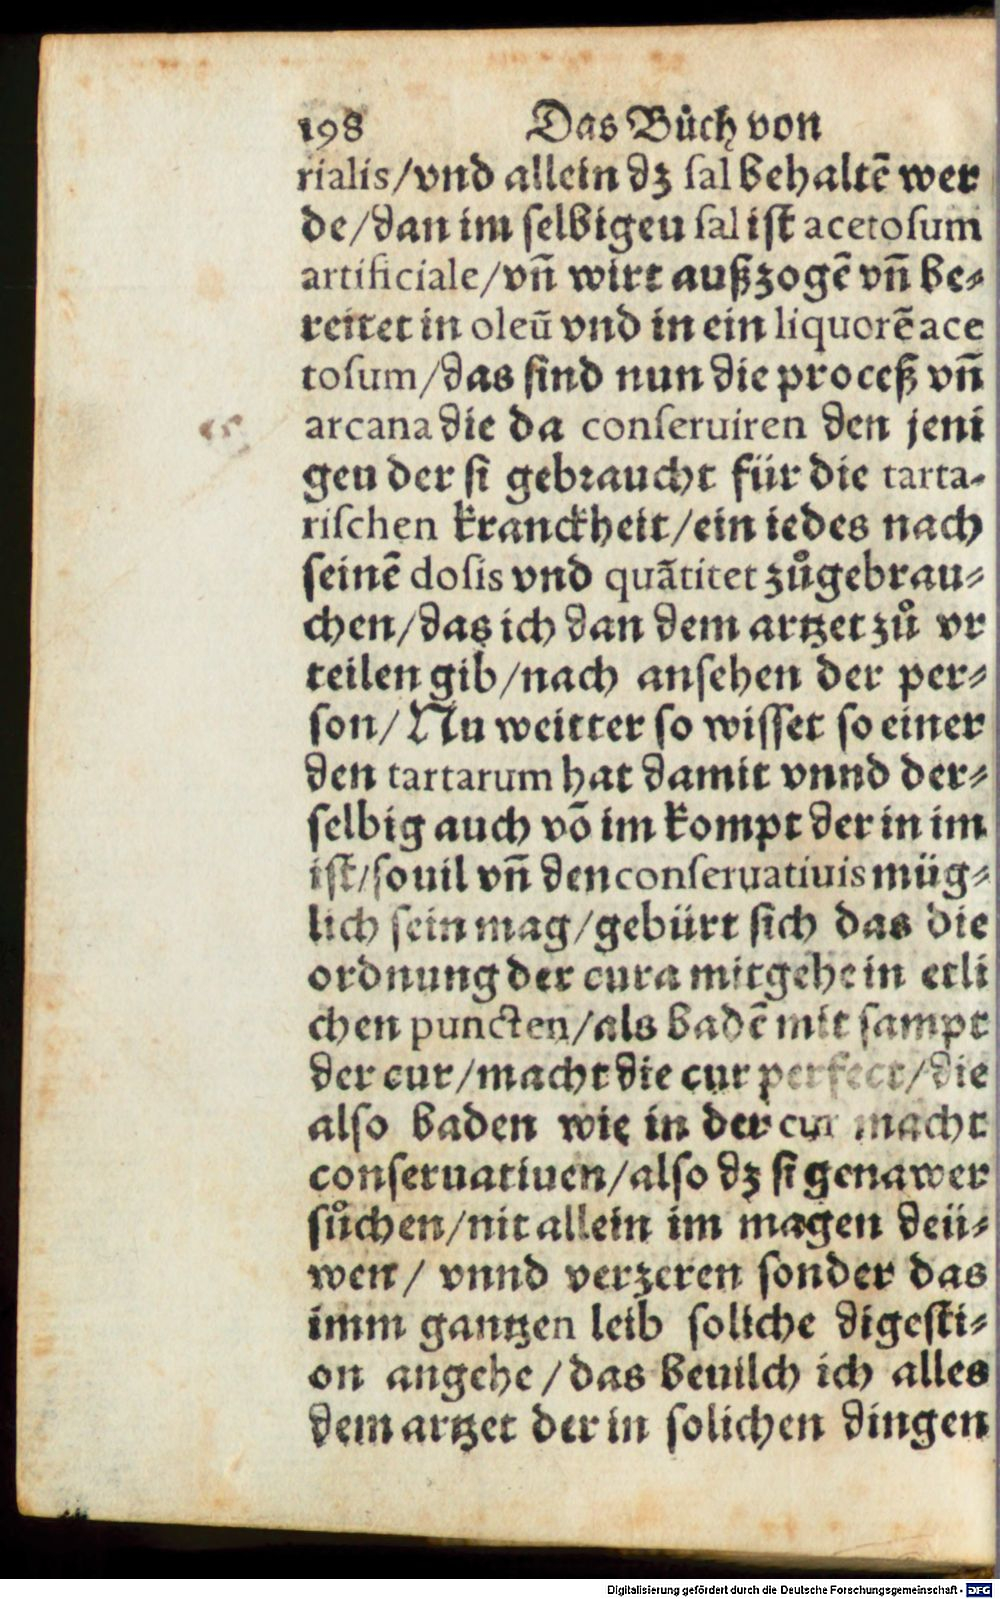 198 Das Bůch von
rialis/vnd allein dz sal behaltē wer
de/dan im selbigeu sal ist acetosum
artificiale/vn̄ wirt außzogē vn̄ be⸗
reitet in oleū vnd in ein liquorē ace
tosum/das sind nun die proceß vn̄
arcana die da conseruiren den jeni
gen der si gebraucht für die tarta⸗
rischen kranckheit/ein iedes nach
seinē dosis vnd quātitet zůgebrau⸗
chen/das ich dan dem artzet zů vr
teilen gib/nach ansehen der per⸗
son/Nu weitter so wisset so einer
den tartarum hat damit vnnd der⸗
selbig auch vō im kompt der in im
ist/souil vn̄ den conseruatiuis müg⸗
lich sein mag/gebürt sich das die
ordnung der cura mitgehe in etli
chen puncten/als badē mit sampt
der cur/macht die cur perfect/die
also baden wie in der cur macht
conseruatiuen/also dz si genawer
sůchen/nit allein im magen deü⸗
wen/ vnnd verzeren sonder das
imm gantzen leib soliche digesti⸗
on angehe/das beuilch ich alles
dem artzet der in solichen dingen
Digitalisierung gefördert durch die Deutsche Forschungsgemeinschaft - DFG